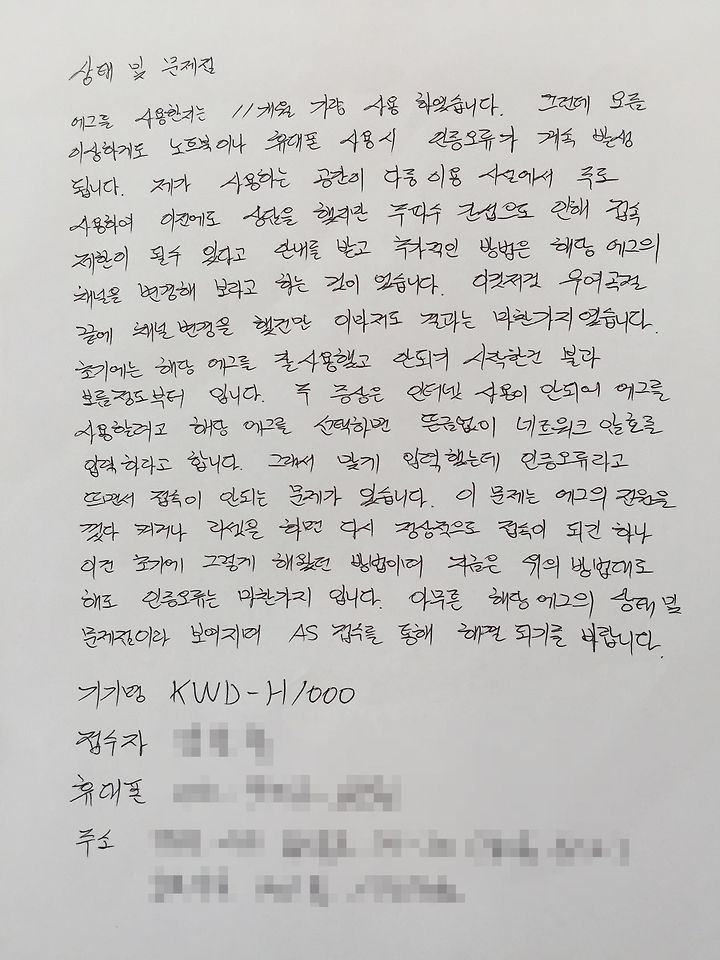 상태 및 문제점
에그를 사용한지는 11개월 가량 사용 하였습니다. 그런데 요즘
이상하게도 노트북이나 휴대폰 사용시 인증오류가 계속 발생
됩니다. 제가 사용하는 공간이 다중 이용 시설에서 주로
사용하여 이전에도 상담을 했지만 주파수 간섭으로 인해 접속
제한이 될수 있다고 안내를 받고 추가적인 방법은 해당 에그의
채널을 변경해 보라고 하는 것이 었습니다. 이것저것 우여곡절
끝에 채널 변경을 했건만 이마저도 결과는 마찬가지 였습니다.
초기에는 해당 에그를 잘 사용했고 안되기 시작한건 불과
보름정도부터 입니다. 주 증상은 인터넷 사용이 안되어 에그를
사용할려고 해당 에그를 선택하면 뜬금없이 네트워크 암호를
입력 하라고 합니다. 그래서 맞게 입력 했는데 인증오류라고
뜨면서 접속이 안되는 문제가 있습니다. 이 문제는 에그의 전원을
껐다 켜거나 리셋을 하면 다시 정상적으로 접속이 되긴 하나
이건 초기에 그렇게 해왔던 방법이며 지금은 위의 방법대로
해도 인증오류는 마찬가지 입니다. 아무튼 해당 에그의 상태 및
문제점이라 보여지며 AS 접수를 통해 해결 되기를 바랍니다.
기기명 KWD-H1000
접수자
휴대폰
주소